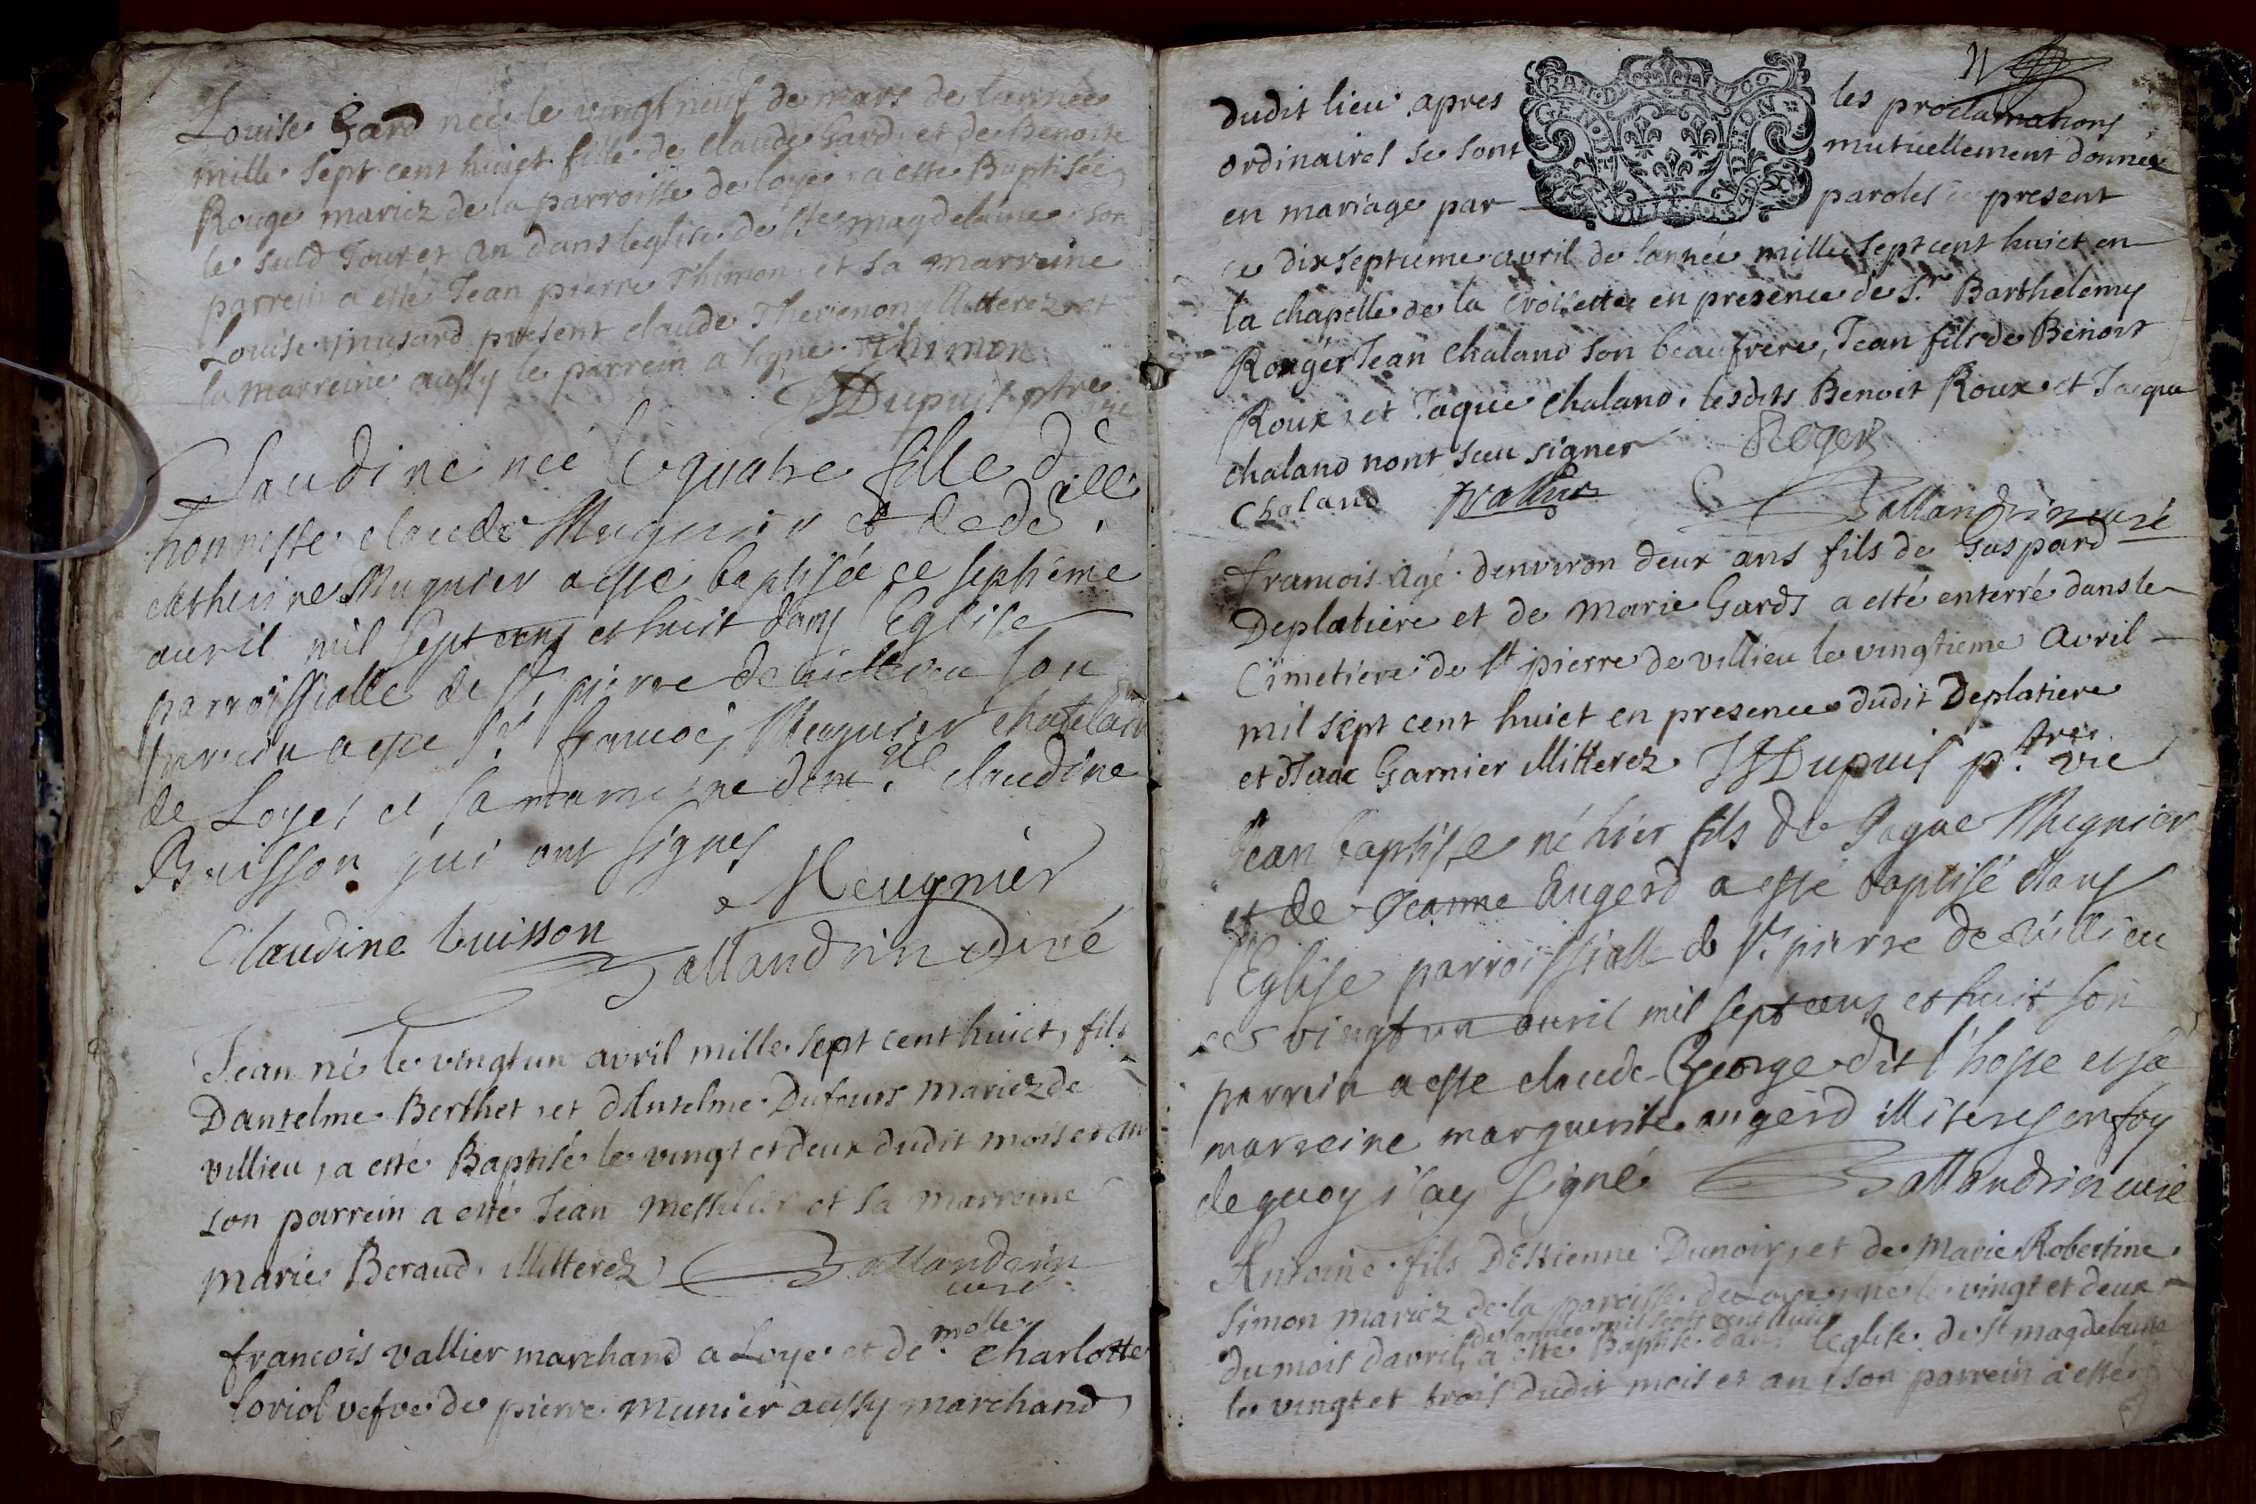 Louise Gard née le vingt neuf de mars de lannée
mille sept cent huict fille de claude Gard et de Benoite
Rouge mariez de la parroisse de loye a esté Baptisée
le susd Jour et an dans leglise de ste magdelaine son
parrein a esté Jean pierre Thimon et sa marreine
Louise musard present claude Thevenon illitterez et
la marreine aussy le parrein a signé Thimon
Dupuis ptre
vie
Claudine née le quatre fille d
honneste claude Mugnier et de de
catherine Mugnier a esté baptisée ce septiéme
auril mil sept cens et huit dans l'Eglise
parroissialle de st pierre de villieu son
parrein a esté sr francois Meugnier chatelain
de Loyes et sa marreine dem.lle claudine
Buisson qui ont signes
Meugnier
Claudine buisson
Ballandrin curé
Jean né le vingt un avril mille sept cent huict, fils
Dantelme Berthet, et dAntelme Dufours mariez de
villieu, a esté Baptisé le vingt et deux dudit mois et an
son parrein a esté Jean et sa marreine
marie Beraud illitterez Ballandrin
curé
molle
francois vallier marchand a Loye et de charlotte
loriol vefve de pierre munier aussy marchand
dudit lieu apres les proclamations
ordinaires se sont mutuellement donnez
en mariage par paroles present
ce dixseptieme avril de lannée mille sept cent huict en
la chapelle de la croisette en presence de Sr Barthelemy
Rouger Jean chaland son beaufrere, Jean fils de Benoit
Roux, et Jaque chaland. lesdits Benoit Roux et Jaque
chaland nont sceu signer Roger
Chaland vallier Ballandrin curé
francois agé denviron deux ans fils de Gaspard
Deplatiere et de marie Gards a esté enterré dans le
Cimetiere de st pierre de villieu le vingtieme avril
mil sept cent huict en presence dudit Deplatiere
et dIsaac Garnier illitterez Dupuis p.tre vie
Jean baptiste né hier fils de Jaque Mugnier
et de Jeanne Angerd a esté baptisé dans
l'Eglise parroissialle de st pierre de villieu
ce vingt un avril mil sept cens et huit son
parrein a esté claude George dit l'hoste et sa
marreine marguerite angerd illiteres en foy
de quoy j'ay signé Ballandrin curé
Antoine fils DEstienne Dunoir, et de Marie Robertine
Simon mariez de la paroisse de Loye, né le vingt et deux
de lannée mil sept cent huict
du mois davril, a esté Baptisé dans leglise de st magdelaine
le vingt et trois dudit mois et an, son parrein a esté